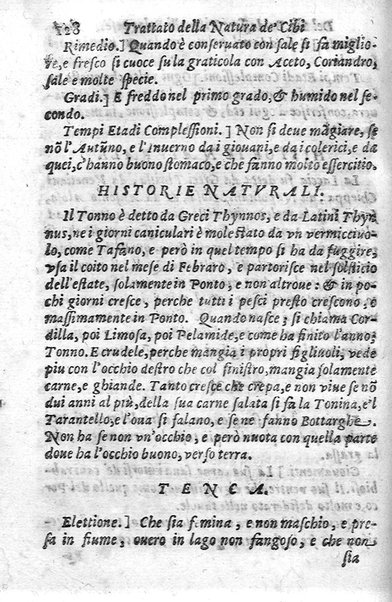 128 Trattato della Natura de' Cibi
Rimedio.] Quando è conseruato con sale si fa miglio-
re, e fresco si cuoce su la graticola con Aceto, Coriandro,
sale e molte specie.
Gradi.] E freddo nel primo grado, & humido nel se-
condo.
Tempi Etadi Complessioni.] Non si deue māgiare, se
nō l'Autūno, e l'Inuerno da i giouani, e da i colerici, e da
quei, c'hanno buono stomaco, e che fanno molto essercitio.
HISTORIE NATVRALI.
Il Tonno è detto da Greci Thynnos, e da Latini Thyn
nus, ne i giorni caniculari è molestato da vn vermicciuo-
lo, come Tafano, e però in quel tempo si ha da fuggire,
vsa il coito nel mese di Febraro, e partorisce nel solsticio
dell'estate, solamente in Ponto, e non altroue: & in po-
chi giorni cresce, perche tutti i pesci presto crescono, e
massimamente in Ponto. Quando nasce, si chiama Cor-
dilla, poi Limosa, poi Pelamide, e come ha finito l'anno,
Tonno. E crudele, perche mangia i propri figliuoli, vede
piu con l'occhio destro che col sinistro, mangia solamente
carne, e ghiande. Tanto cresce che crepa, e non viue se nō
dui anni al più, della sua carne salata si fa la Tonina, e'l
Tarantello, e l'oua si salano, e se ne fanno Bottarghe.
Non ha se non vn'occhio, e però nuota con quella parte
doue ha l'occhio buono, verso terra.
TENCA.
Elettione.] Che sia femina, e non maschio, e pre-
sa in fiume, ouero in lago non fangoso, e che non
sia